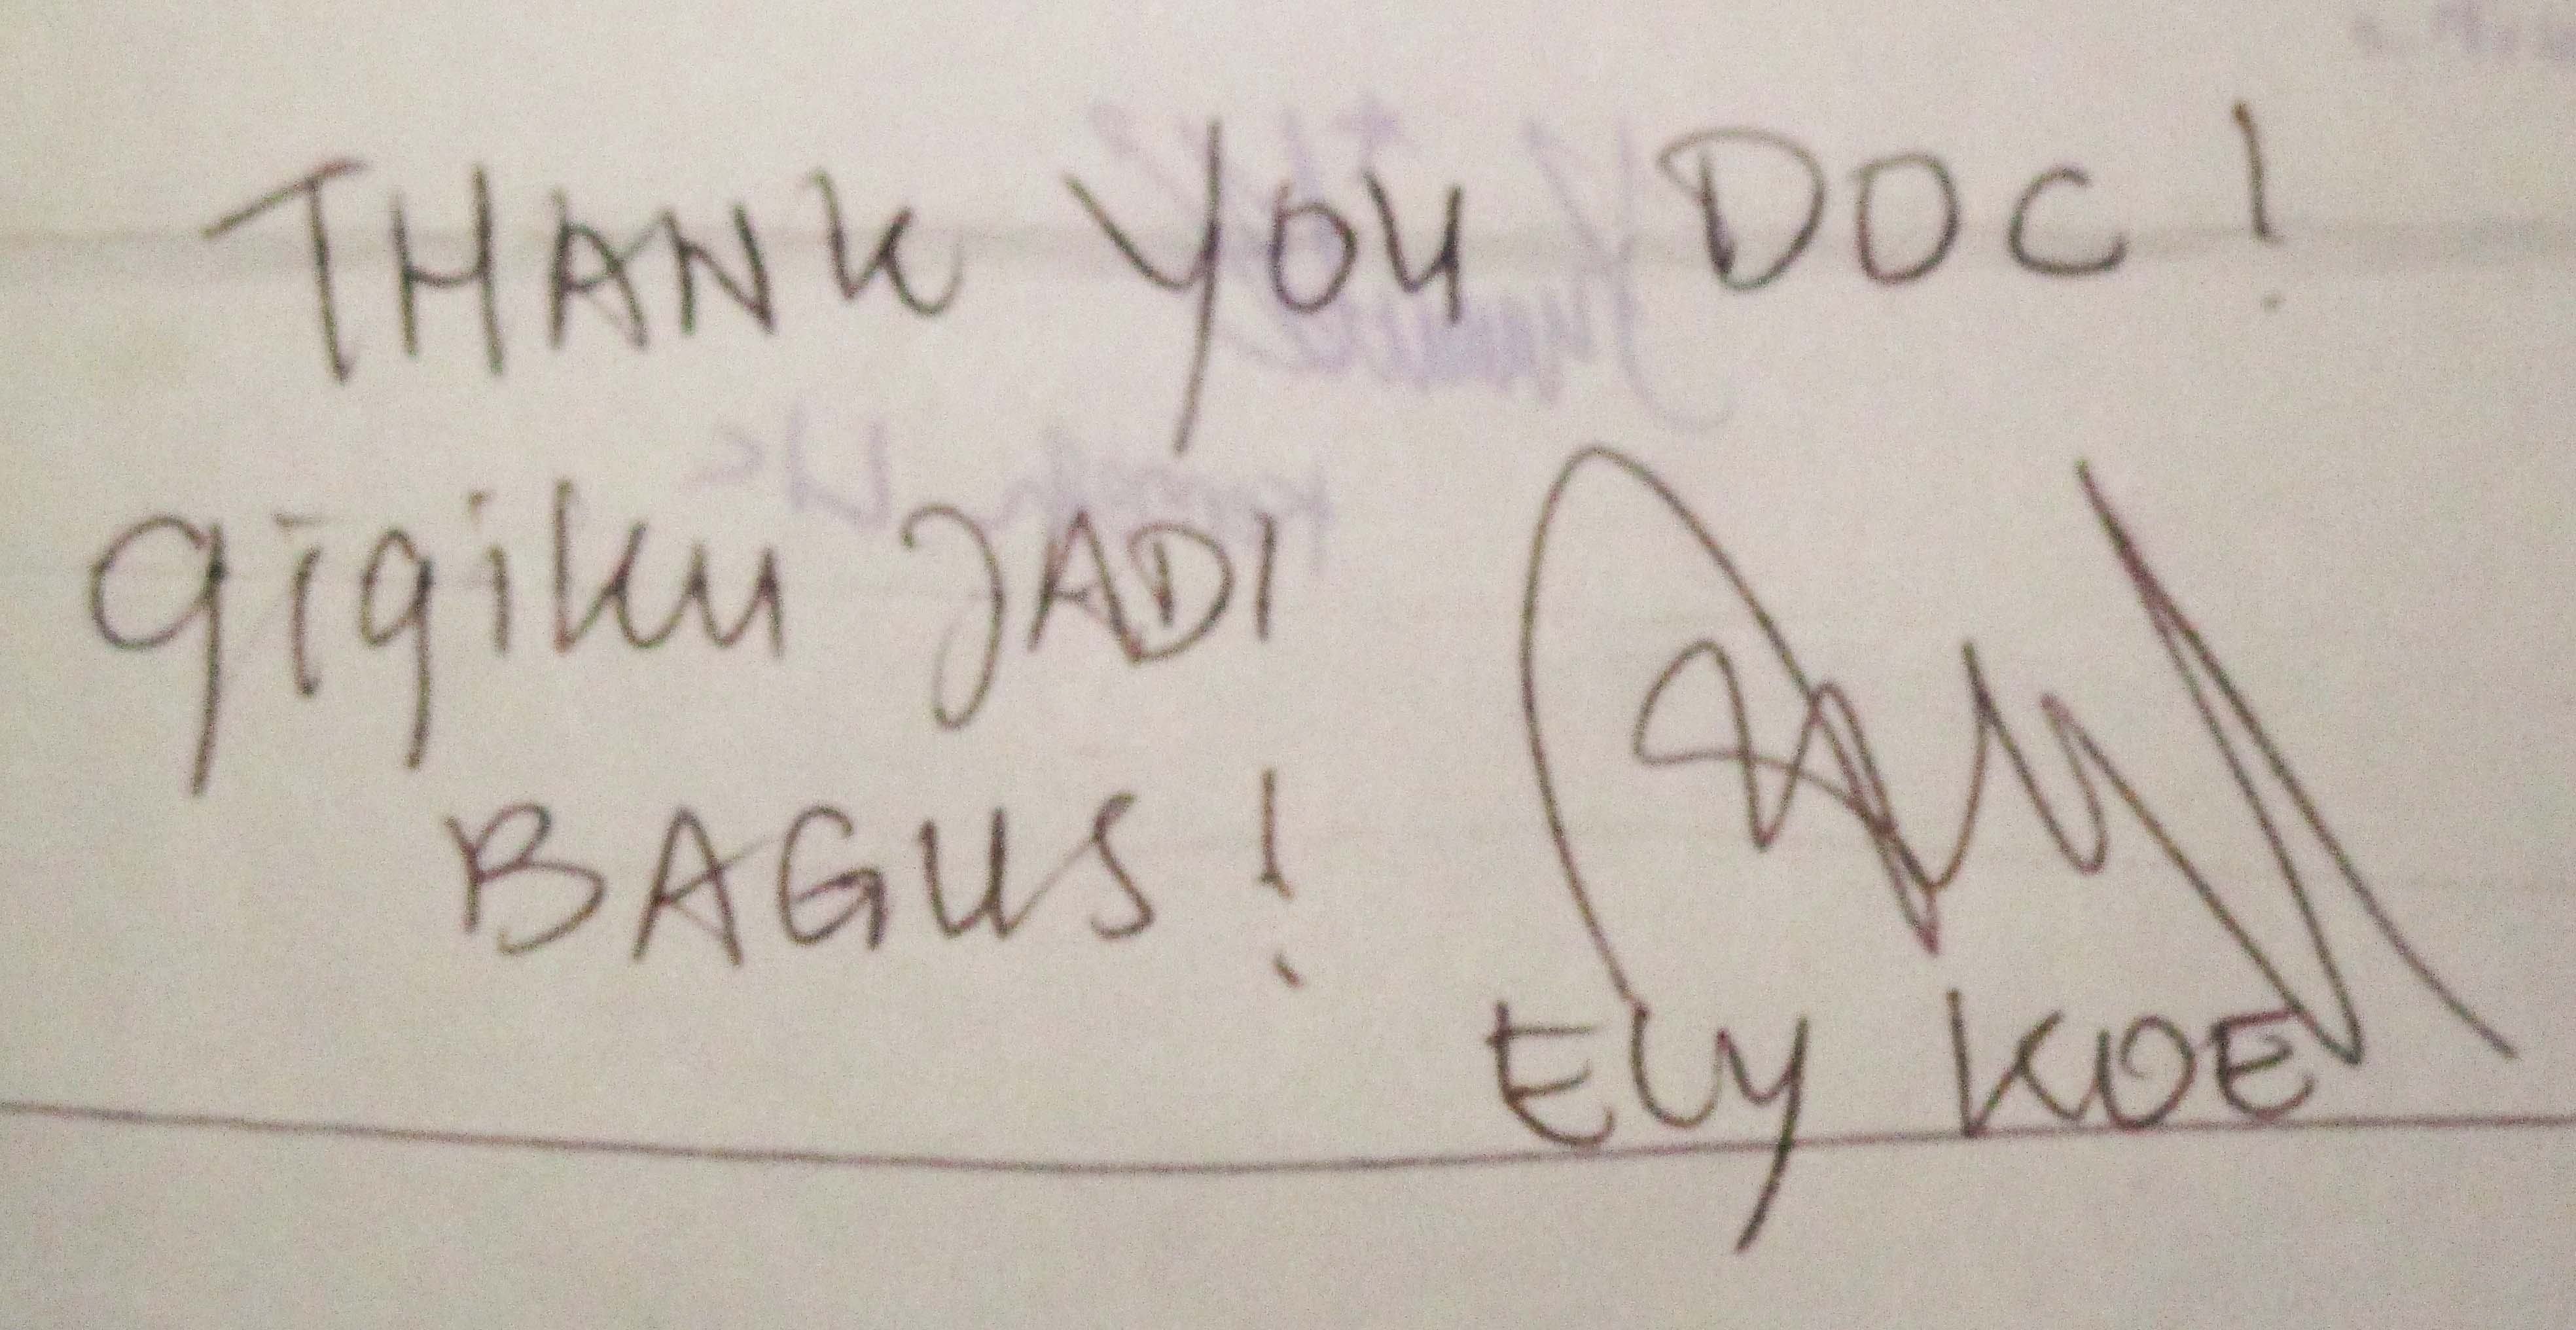 THANK YOU DOC!
gigiku JADI
BAGUS!
Ely KOE